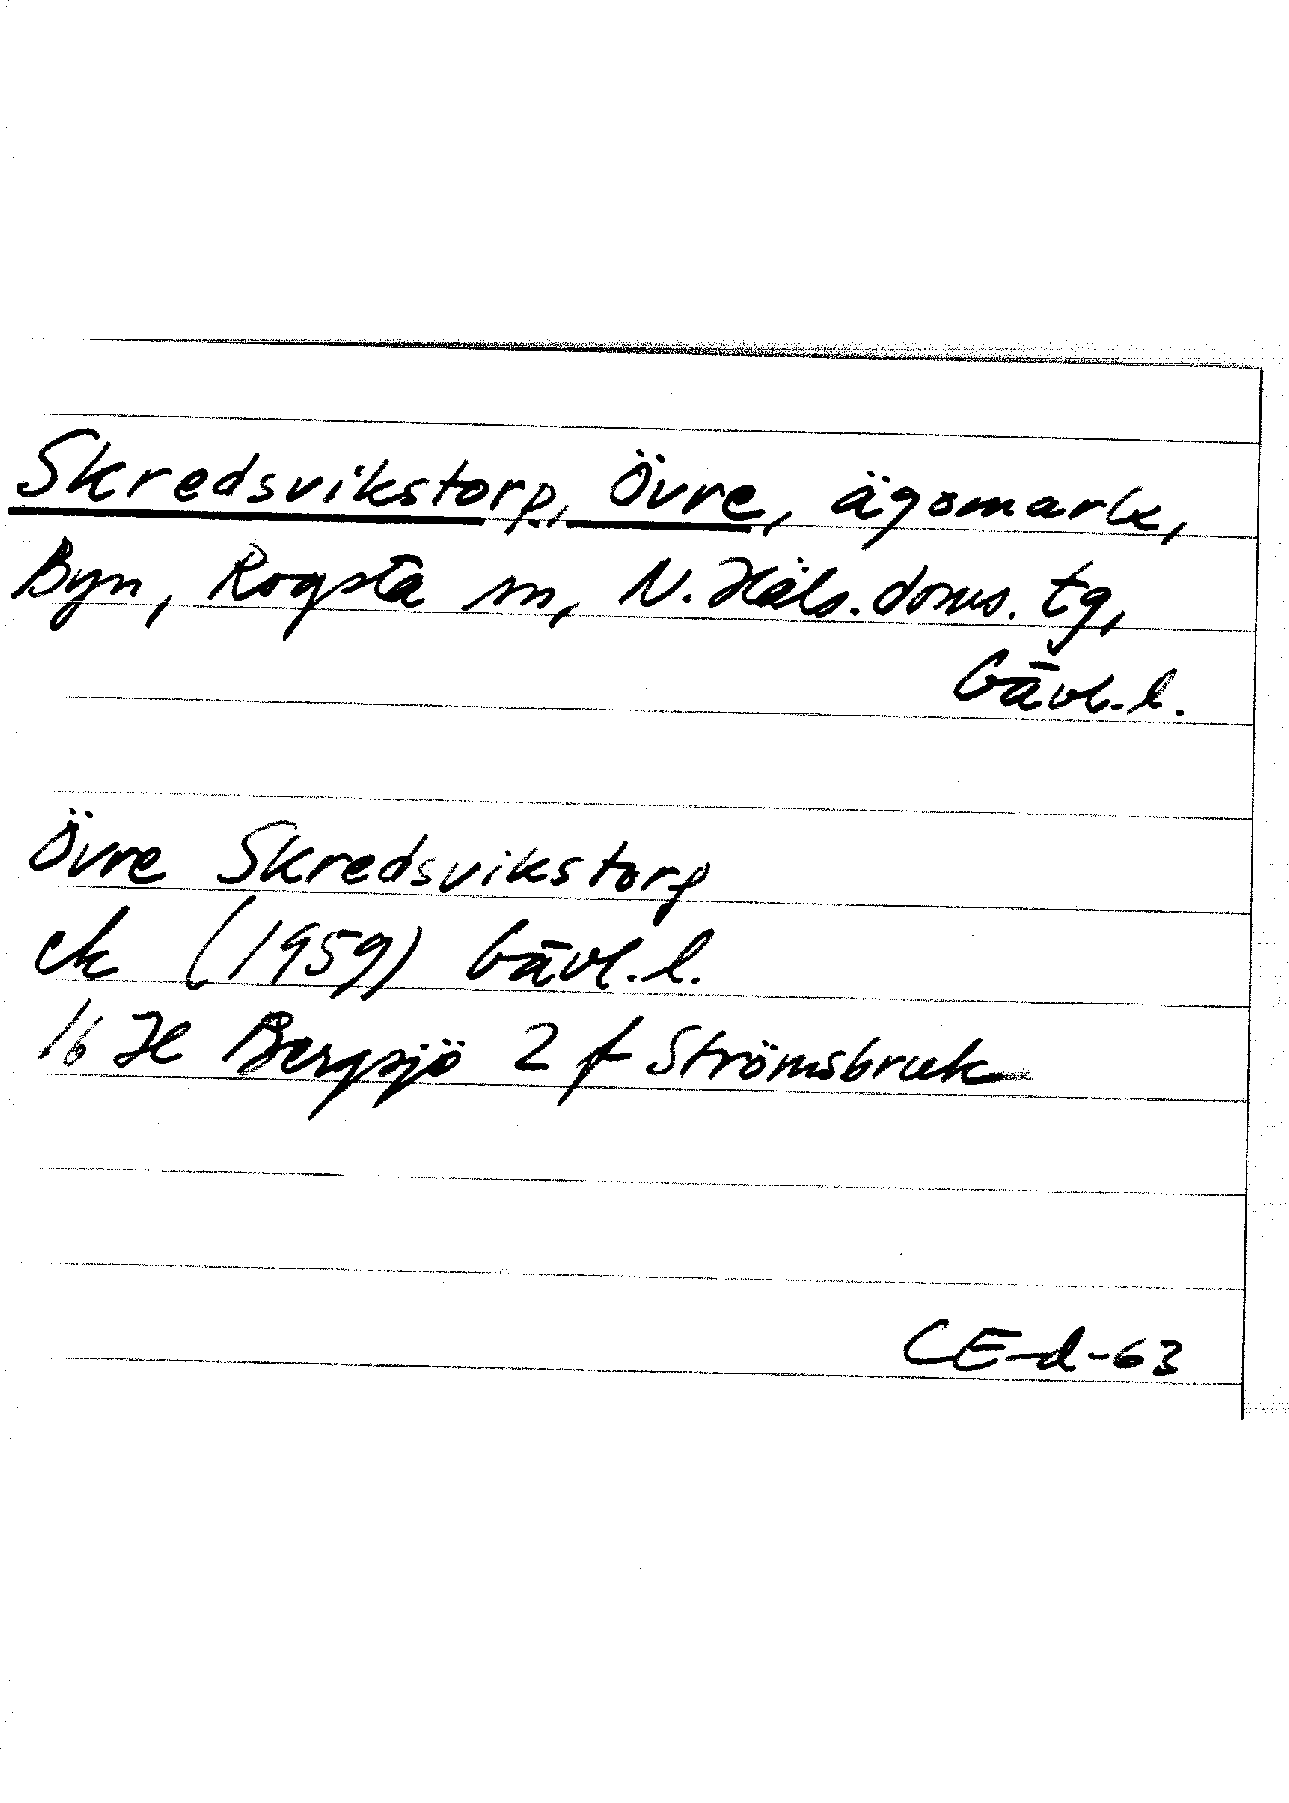 Skredsvikstorp, Övre, ägomark,
Byn, Rogsta sn, N. Häls. doms. tg,
Gävl. l.
Övre Skredsvikstorp
ek (1959) Gävl. l.
16 H Bergsjö 2 f Strömsbruk
CE-d-63